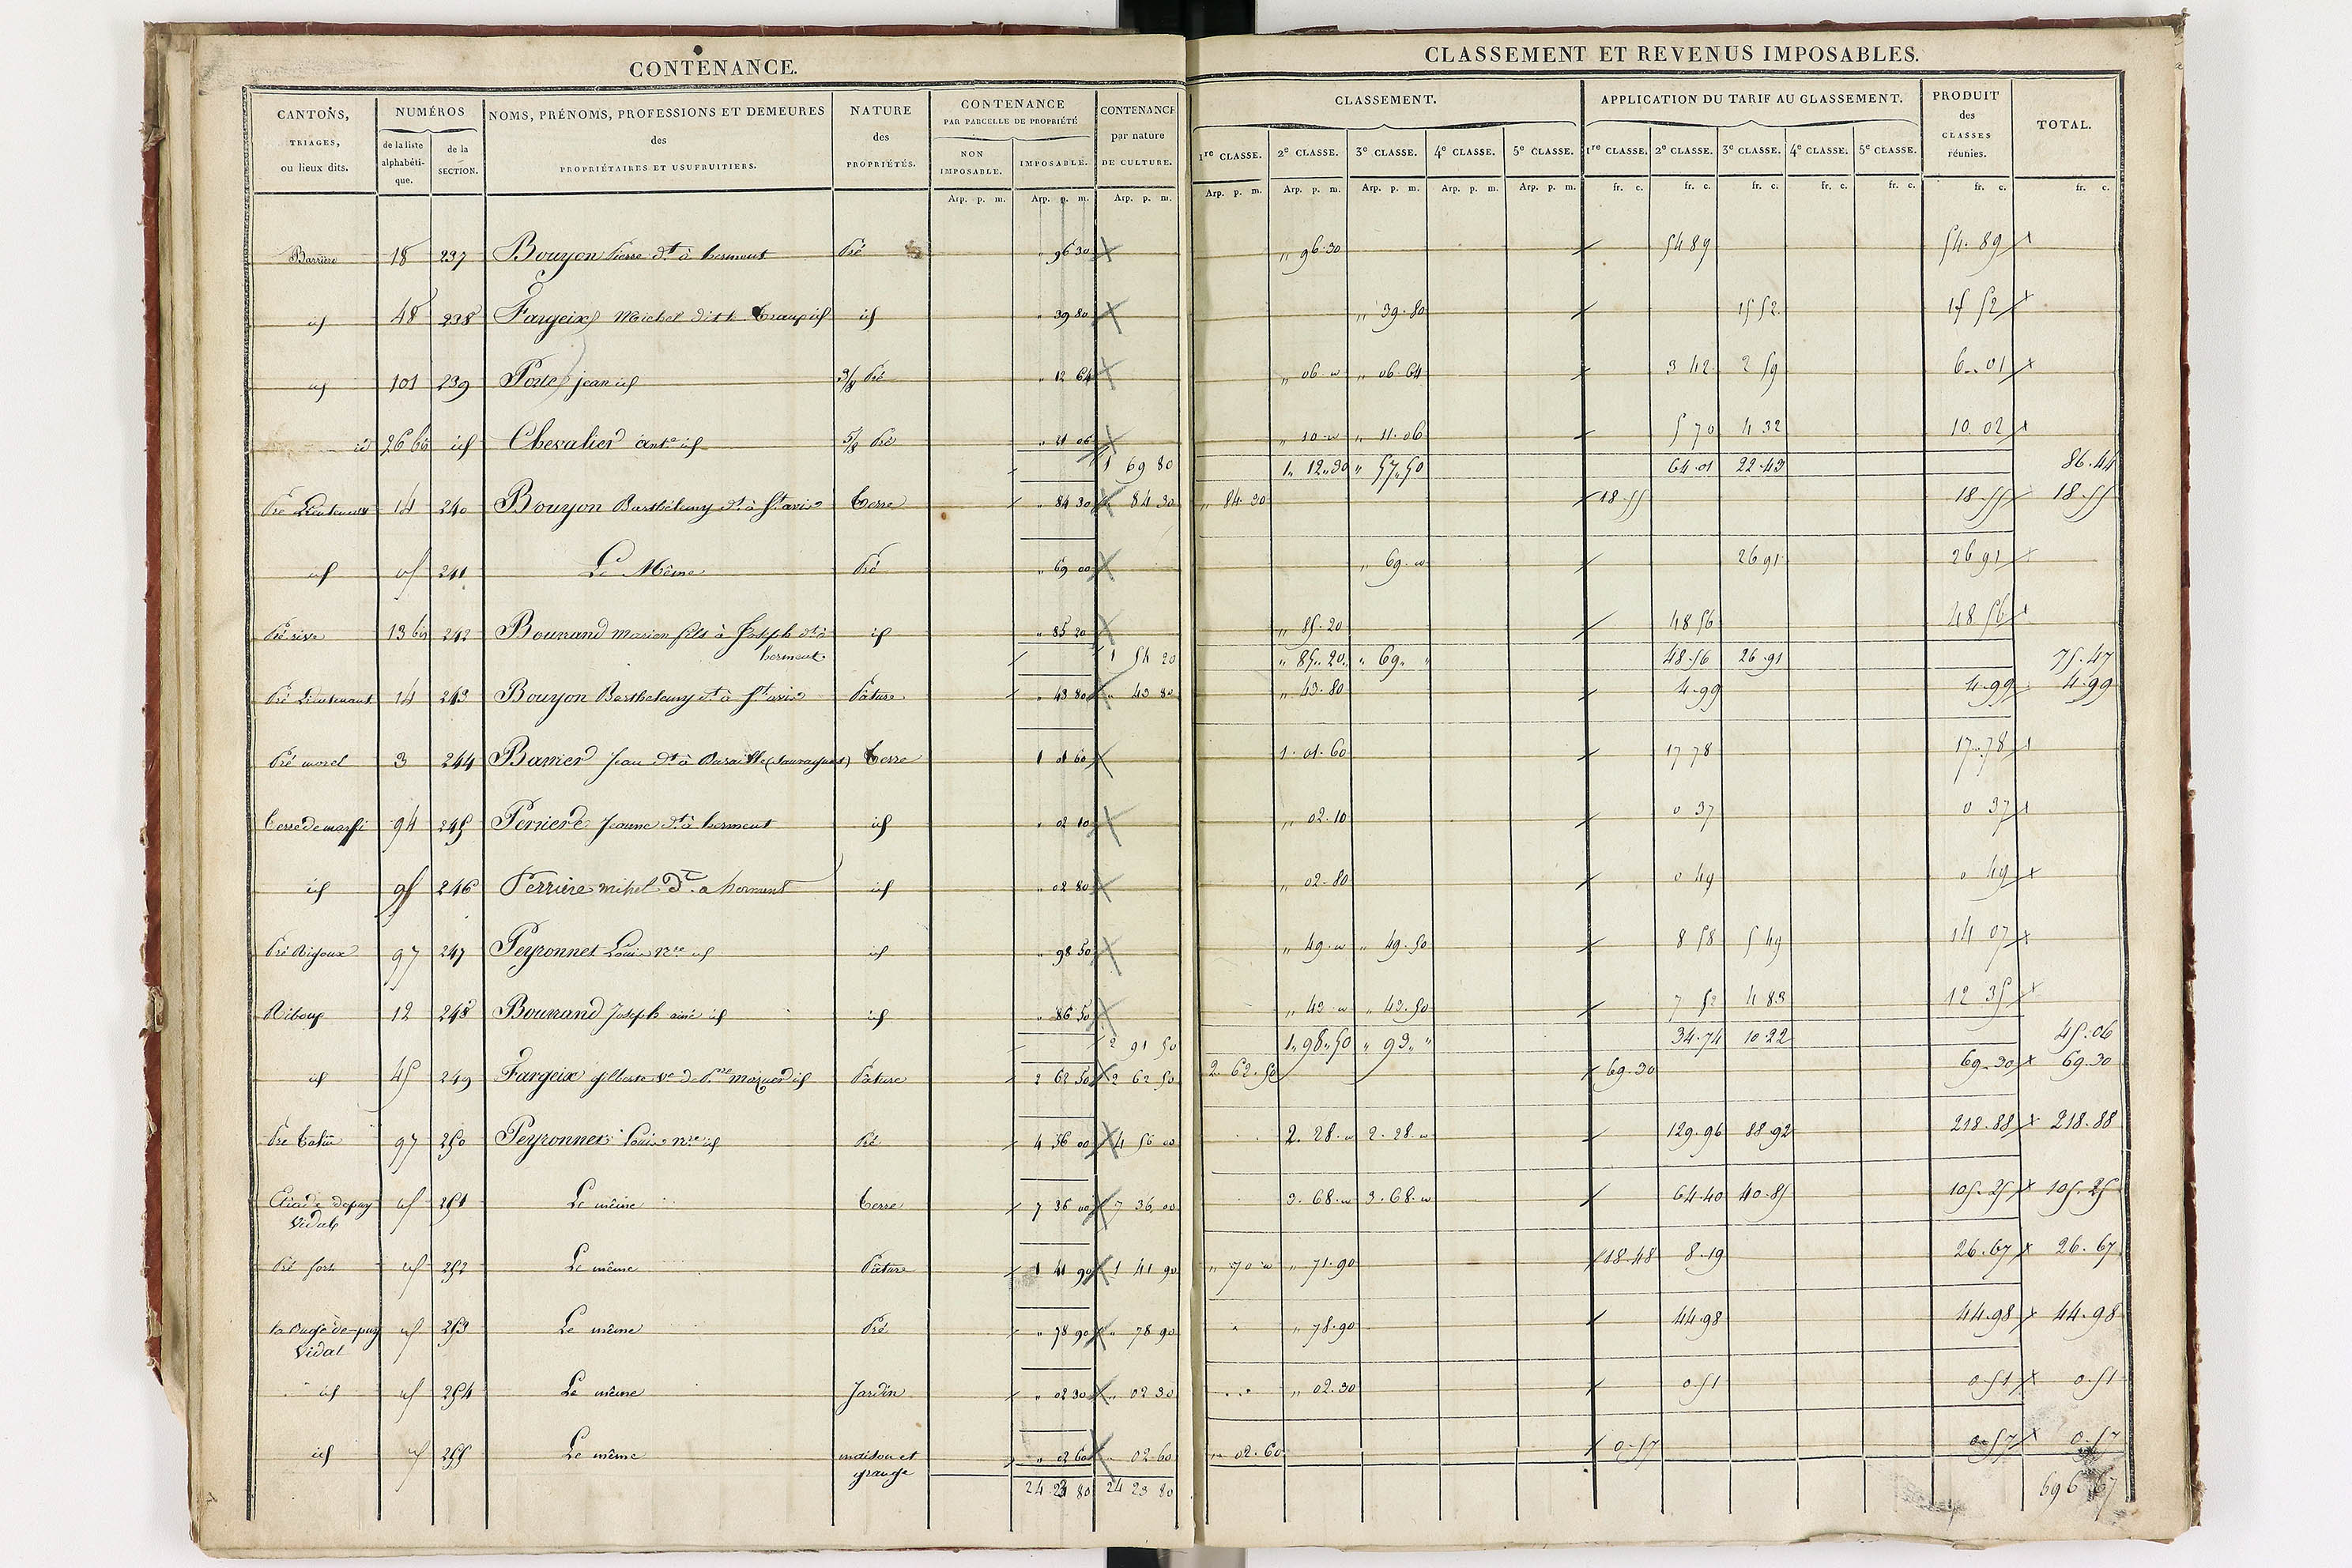 CONTENANCE.
CLASSEMENT ET REVENUS IMPOSABLES.
CANTONS, TRIAGES, ou lieux dits.
NUMÉROS
de la liste alphabéti-que.
de la SECTION.
NOMS, PRÉNOMS, PROFESSIONS ET DEMEURES
des
PROPRIÉTAIRES ET USUFRUITIERS.
NATURE
des
PROPRIÉTÉS.
CONTENANCE
PAR PARCELLE DE PROPRIÉTÉ
NON IMPOSABLE.
IMPOSABLE.
CONTENANCE
par nature
DE CULTURE.
CLASSEMENT.
1re CLASSE. 2e CLASSE. 3e CLASSE. 4e CLASSE. 5e CLASSE.
APPLICATION DU TARIF AU CLASSEMENT.
1re CLASSE. 2e CLASSE. 3e CLASSE. 4e CLASSE. 5e CLASSE.
PRODUIT
des
CLASSES
réunies.
TOTAL.
Arp. p. m. Arp. p. m. Arp. p. m. Arp. p. m. Arp. p. m. Arp. p. m. Arp. p. m. Arp. p. m. fr. c. fr. c. fr. c. fr. c. fr. c. fr. c. fr. c.
Barrière 18 237 Bouyon Pierre dt à herment Pré " 96 30 " 96.30 54 89 54.89
id 48 238 Fargeix Michel dit id id " 39 80 " 39.80 15 52 15 52
id 101 239 Porte jean id 3/8 Pré " 12 64 " 06 " 06.64 3 42 2 59 6.01
id 26 bis id Chevalier ante id 5/8 Pré " 21 06 " 10 " 11.06 5 70 4 32 10 02
1 69 80 1. 12.30 " 57.50 64.01 22.43 86.44
Pré Lieutenant 14 240 Bouyon Barthélemy dt à St avit Terre " 84 30 " 84 30 " 84.30 18.55 18.55 18.55
id id 241 Le Même Pré " 69 00 " 69 26 91 26 91
Pré rive 13 bis 242 Bourrand marien fils à Joseph dt à
herment id " 85 20 " 85.20 48 56 48 56
1 54 20 " 85.20 " 69 " 48.56 26.91 75.47
Pré Lieutenant 14 243 Bouyon Barthelemy dt à St avit Pâture " 43 80 " 43 80 " 43.80 4.99 4.99 4.99
Pré morel 3 244 Jean dt à Terre 1 01 60 1.01.60 17 78 17.78
94 245 Perriere Jeanne dt à herment id " 02 10 " 02.10 0 37 0 37
id 95 246 Perriere mihel dt a herment id " 02 80 " 02.80 0 49 0 49
97 247 Peyronnet Louis nre id id " 98 50 " 49 " 49.50 8 58 5 49 14 07
12 248 Bourrand Joseph ainé id id " 86 50 " 43 " 43.50 7 52 4 83 12 35
2 91 50 1.98.50 " 93 " 34.74 10.22 45.06
id 45 249 Fargeix gilberte ve de id Pature 2 62 50 2 62 50 2.62.50 69.30 69.30 69.30
97 250 Peyronnet Louis nre id Pré 4 56 00 4 56 00 2.28 2.28 129.96 88.92 218.88 218.88
id 251 Le même Terre 7 36 00 7 36 00 3.68 3.68 64.40 40.85 105.25 105.25
Vidal
id 252 Le même Pâture 1 41 90 1 41 90 " 70 " 71.90 18.48 8.19 26.67 26.67
id 253 Le même Pré " 78 90 " 78 90 " 78.90 44.98 44.98 44.98
Vidal
id id 254 Le même Jardin " 02 30 " 02 30 " 02.30 0.51 0.51 0.51
id id 255 Le même maison et
grange " 02 60 " 02.60 " 02.60 0.57 0.57 0.57
24 23 80 24 23 80 696 67